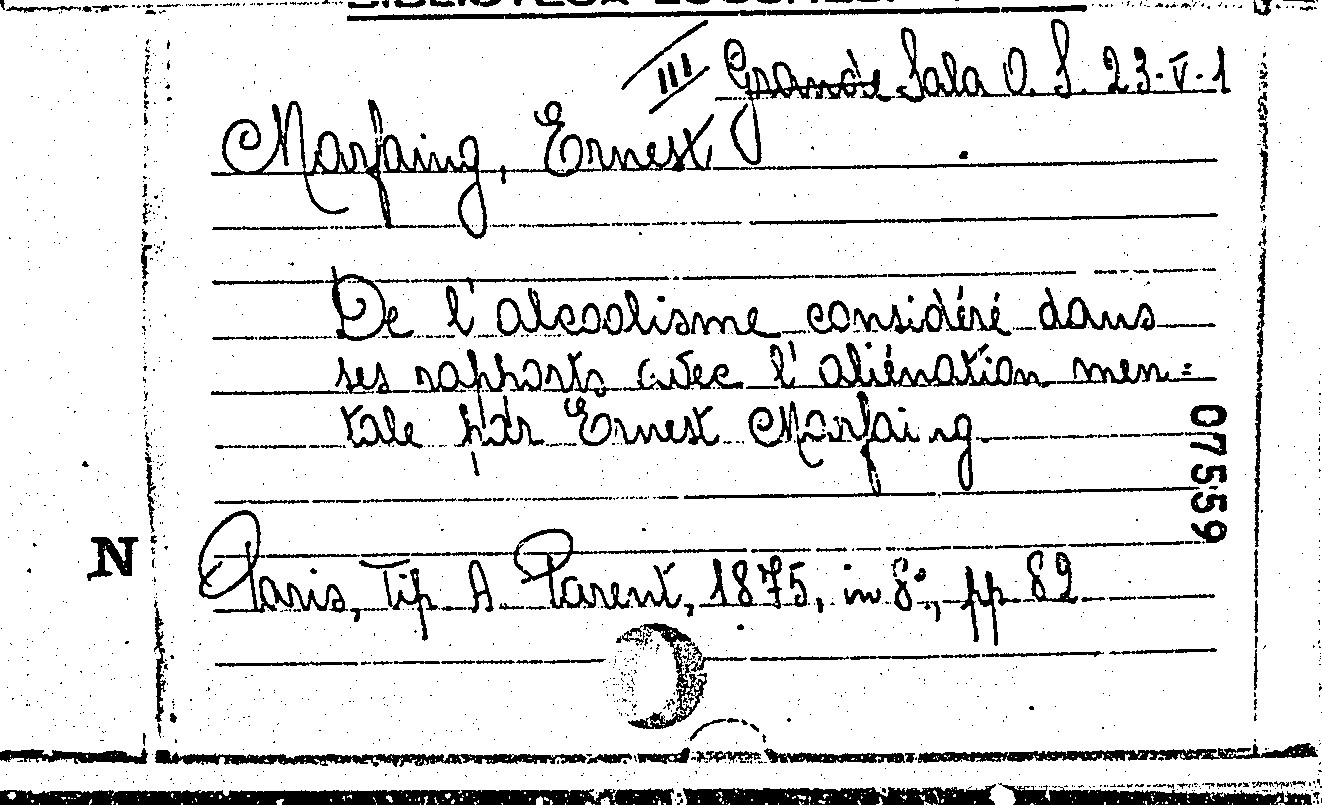 III Grande Sala O. S. 23-V-1
Marfaing, Ernest
De l'alcoolisme considéré dans
ses rapports avec l'aliénation men=
tale par Ernest Marfaing
07559
N
Paris, Tip A. Parent, 1875, in 8°, pp 82